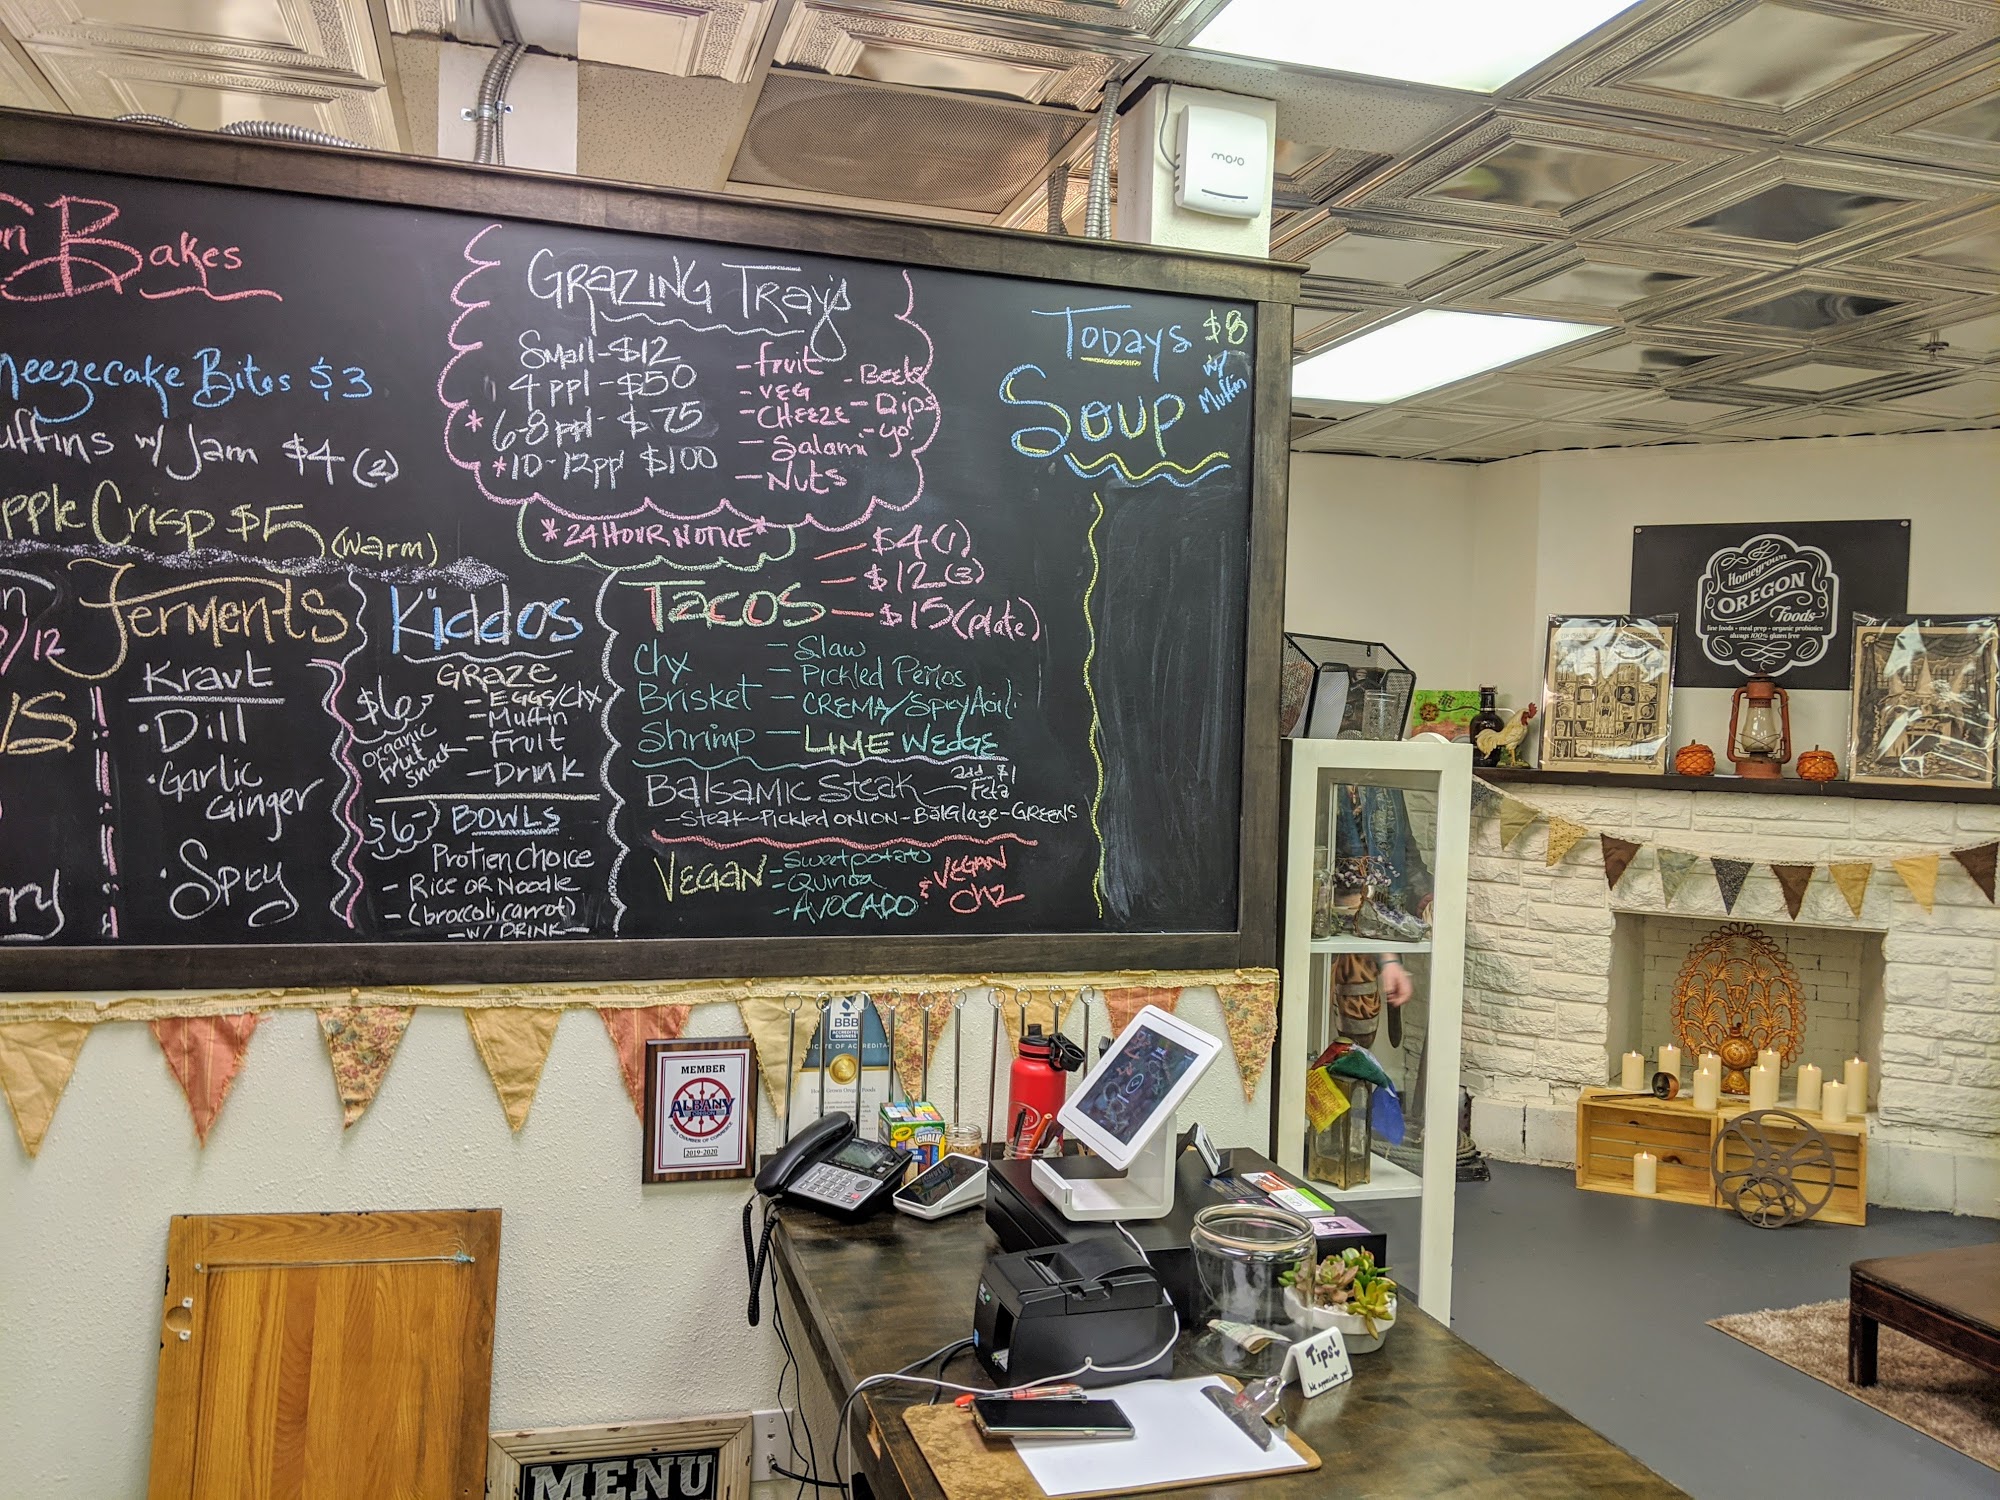 Bakes
Bites $3
w/ Jam $4 (2)
Crisp $5 (warm)
/12
Ferments
Kraut
• Dill
• Garlic
Ginger
• Spicy
Kiddos
GRAZE
$6
organic
fruit
snack
- EGGS/Chx
- Muffin
- Fruit
- Drink
$6-
BOWLS
Protien Choice
- Rice or Noodle
- (broccoli, carrot)
- w/ DRINK -
GRAZING Trays
Small - $12
4 ppl - $50
* 6-8 ppl - $75
* 10-12 ppl $100
- fruit
- VEG
- CHEEZE
- Salami
- Nuts
- Dips
* 24 HOUR NOTICE *
Tacos
- $4 (1)
- $12 (3)
- $15 (plate)
Chx
Brisket
Shrimp
- Slaw
- Pickled
- CREMA/
- LIME WEDGE
Balsamic Steak - add $1
Feta
- Steak - Pickled ONION - BalGlaze - GREENS
VEGAN
- Sweet potato
- Quinoa
- AVOCADO
& VEGAN
Chz
Todays
Soup
$8
w/
Muffin
mojo
Homegrown
OREGON
Foods
fine foods • meal prep • organic probiotics
always 100% gluten free
BBB
ACCREDITED
BUSINESS
MEMBER
ALBANY
AREA CHAMBER OF COMMERCE
2019-2020
Crayola
CHALK
Tips!
We appreciate you!
MENU